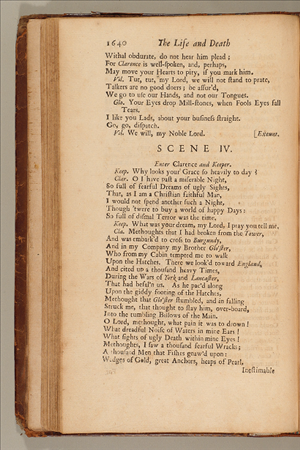 1640 The Life and Death
Withal obdurate, do not hear him plead;
For Clarence is well-spoken, and, perhaps,
May move your Hearts to pity, if you mark him.
Vil. Tut, tut, my Lord, we will not stand to prate,
Talkers are no good doers; be assur'd,
We go to use our Hands, and not our Tongues.
Glo. Your Eyes drop Mill-stones, when Fools Eyes fall
Tears.
I like you Lads, about your business straight.
Go, go, dispatch.
Vil. We will, my Noble Lord. [Exeunt.
SCENE IV.
Enter Clarence and Keeper.
Keep. Why looks your Grace so heavily to day?
Clar. O I have past a miserable Night,
So full of fearful Dreams of ugly Sights,
That, as I am a Christian faithful Man,
I would not spend another such a Night,
Though 'twere to buy a world of happy Days:
So full of dismal Terror was the time.
Keep. What was your dream, my Lord, I pray you tell me.
Cla. Methoughts that I had broken from the Tower,
And was embark'd to cross to Burgundy,
And in my Company my Brother Glo'ster,
Who from my Cabin tempted me to walk
Upon the Hatches. There we look'd toward England,
And cited up a thousand heavy Times,
During the Wars of York and Lancaster,
That had befal'n us. As he pac'd along
Upon the giddy footing of the Hatches,
Methought that Glo'ster stumbled, and in falling
Struck me, that thought to stay him, over-board,
Into the tumbling Billows of the Main.
O Lord, methought, what pain it was to drown!
What dreadful Noise of Waters in mine Ears!
What sights of ugly Death within mine Eyes!
Methoughts, I saw a thousand fearful Wracks;
A thousand Men that Fishes gnaw'd upon:
Wedges of Gold, great Anchors, heaps of Pearl,
Inestimable